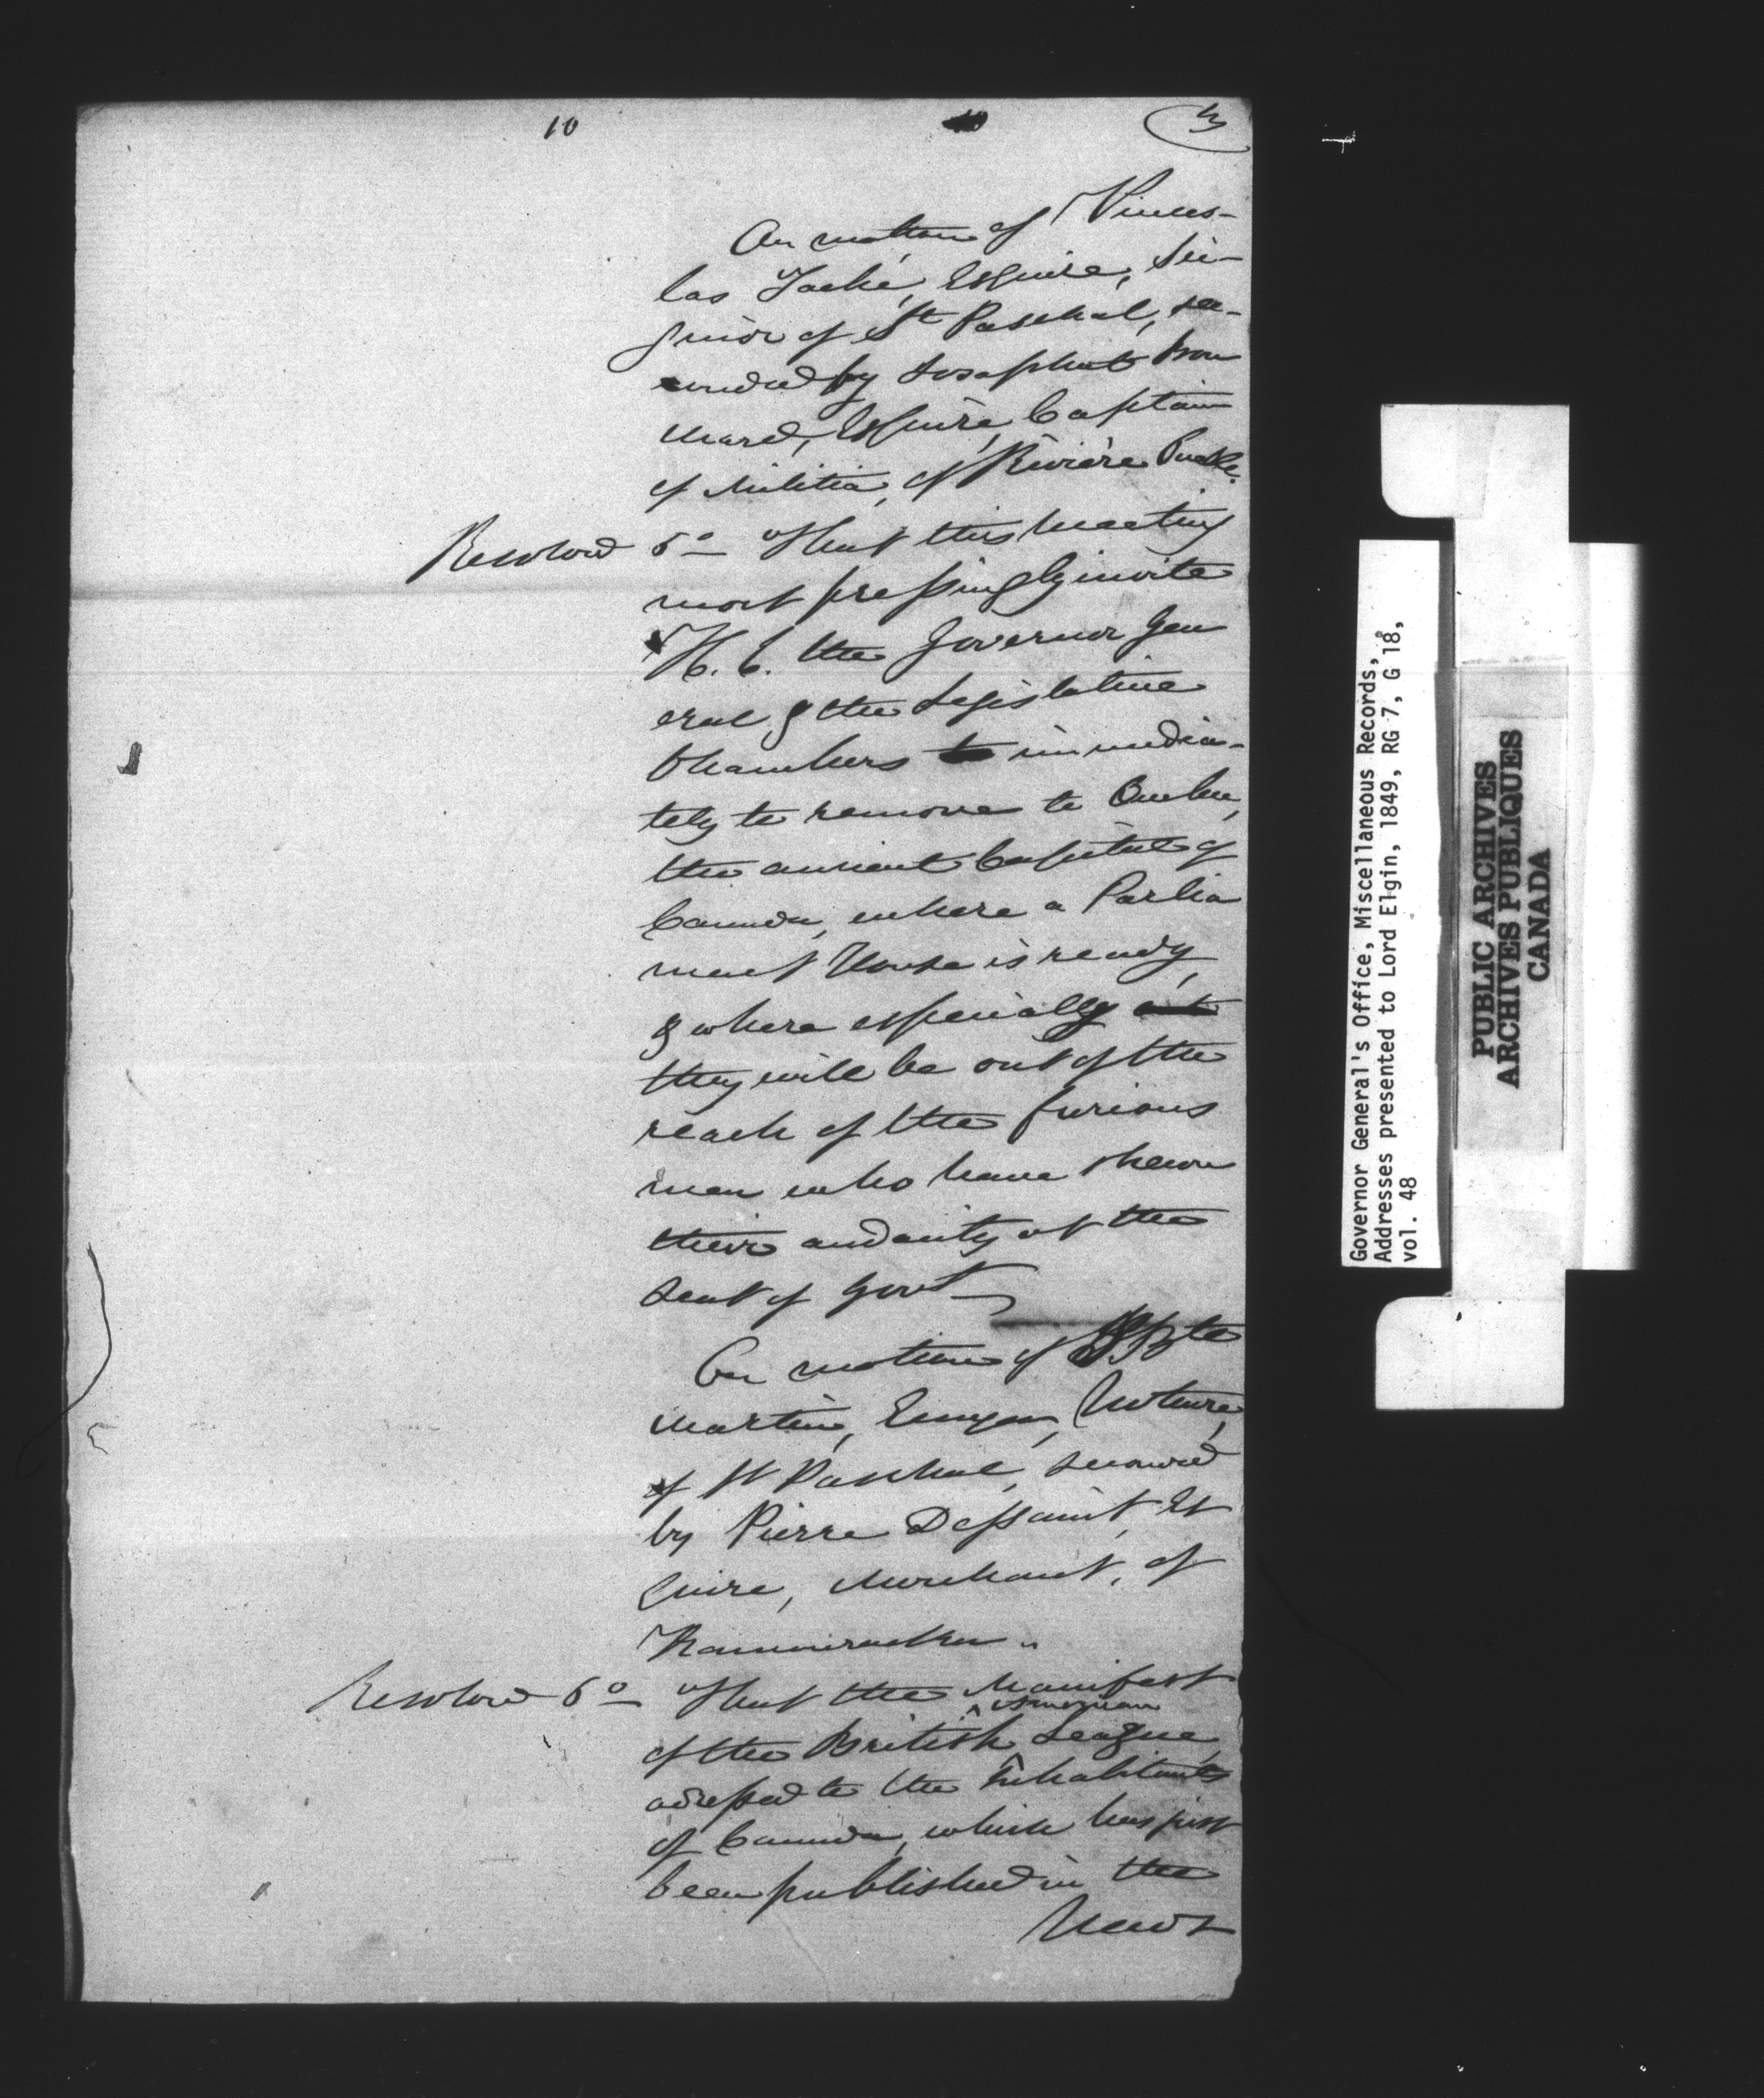 10
3
On motion of Vinces-
las Taché, Esquire, Sei-
gnior of St Paschal, sec-
conded by Josaphat
Esquire, Captain
of Militia, of Rivière Ouelle.
Resolved 5o That this Meeting
most pressingly invite
H. E. the Governor Gen
eral & the Legislative
Chambers to immedia-
tely to remove to Quebec,
the ancient Capital of
Canada, where a Parlia
ment House is ready,
& where especially
they will be out of the
reach of the furious
men who have shewn
their audacity at the
Seat of Govt
On motion of JBte
Martin, Notaire,
of St Paschal, seconded
by Pierre Dessaint, Es
quire, Merchant, of
Kamouraska.
Resolved 6o That the Manifest
American
of the British League,
adressed to the Inhabitants
of Canada, which has just
been published in the
News
Governor General's Office, Miscellaneous Records,
Addresses presented to Lord Elgin, 1849, RG 7, G 18,
vol. 48
PUBLIC ARCHIVES
ARCHIVES PUBLIQUES
CANADA